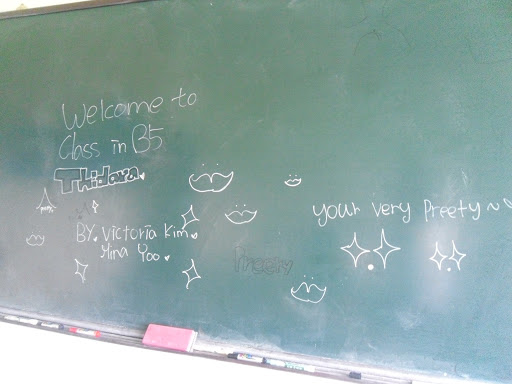 Welcome to
Class in B5
Thidara
BY. Victoria Kim
Mina Yoo
your very Preety ~
Preety